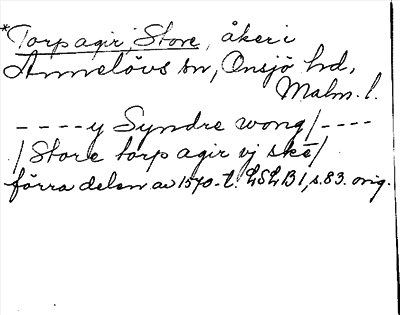 *Torp agir, Store, åker i
Annelövs sn, Onsjö hd,
Malm. l.
----y Syndre wong/----
/Store torp agir vj skē/
förra delen av 1570-t. LSLB1, s. 83. orig.